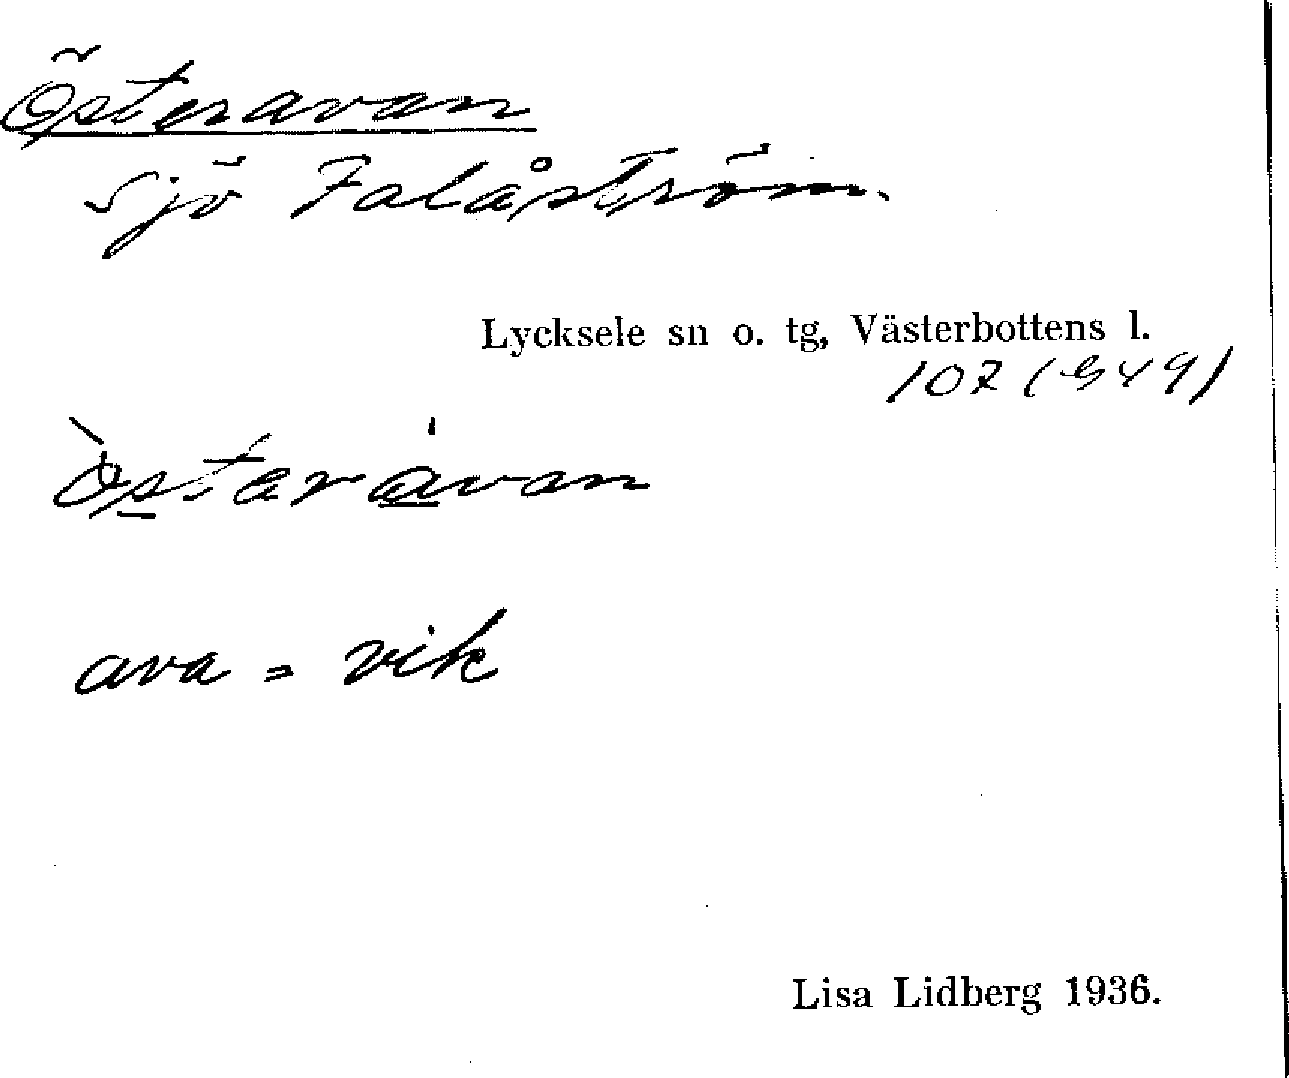 Österavan
Sjö Falåström.
Lycksele sn o. tg, Västerbottens l.
107 (S49)
òstarávan
ava = vik
Lisa Lidberg 1936.